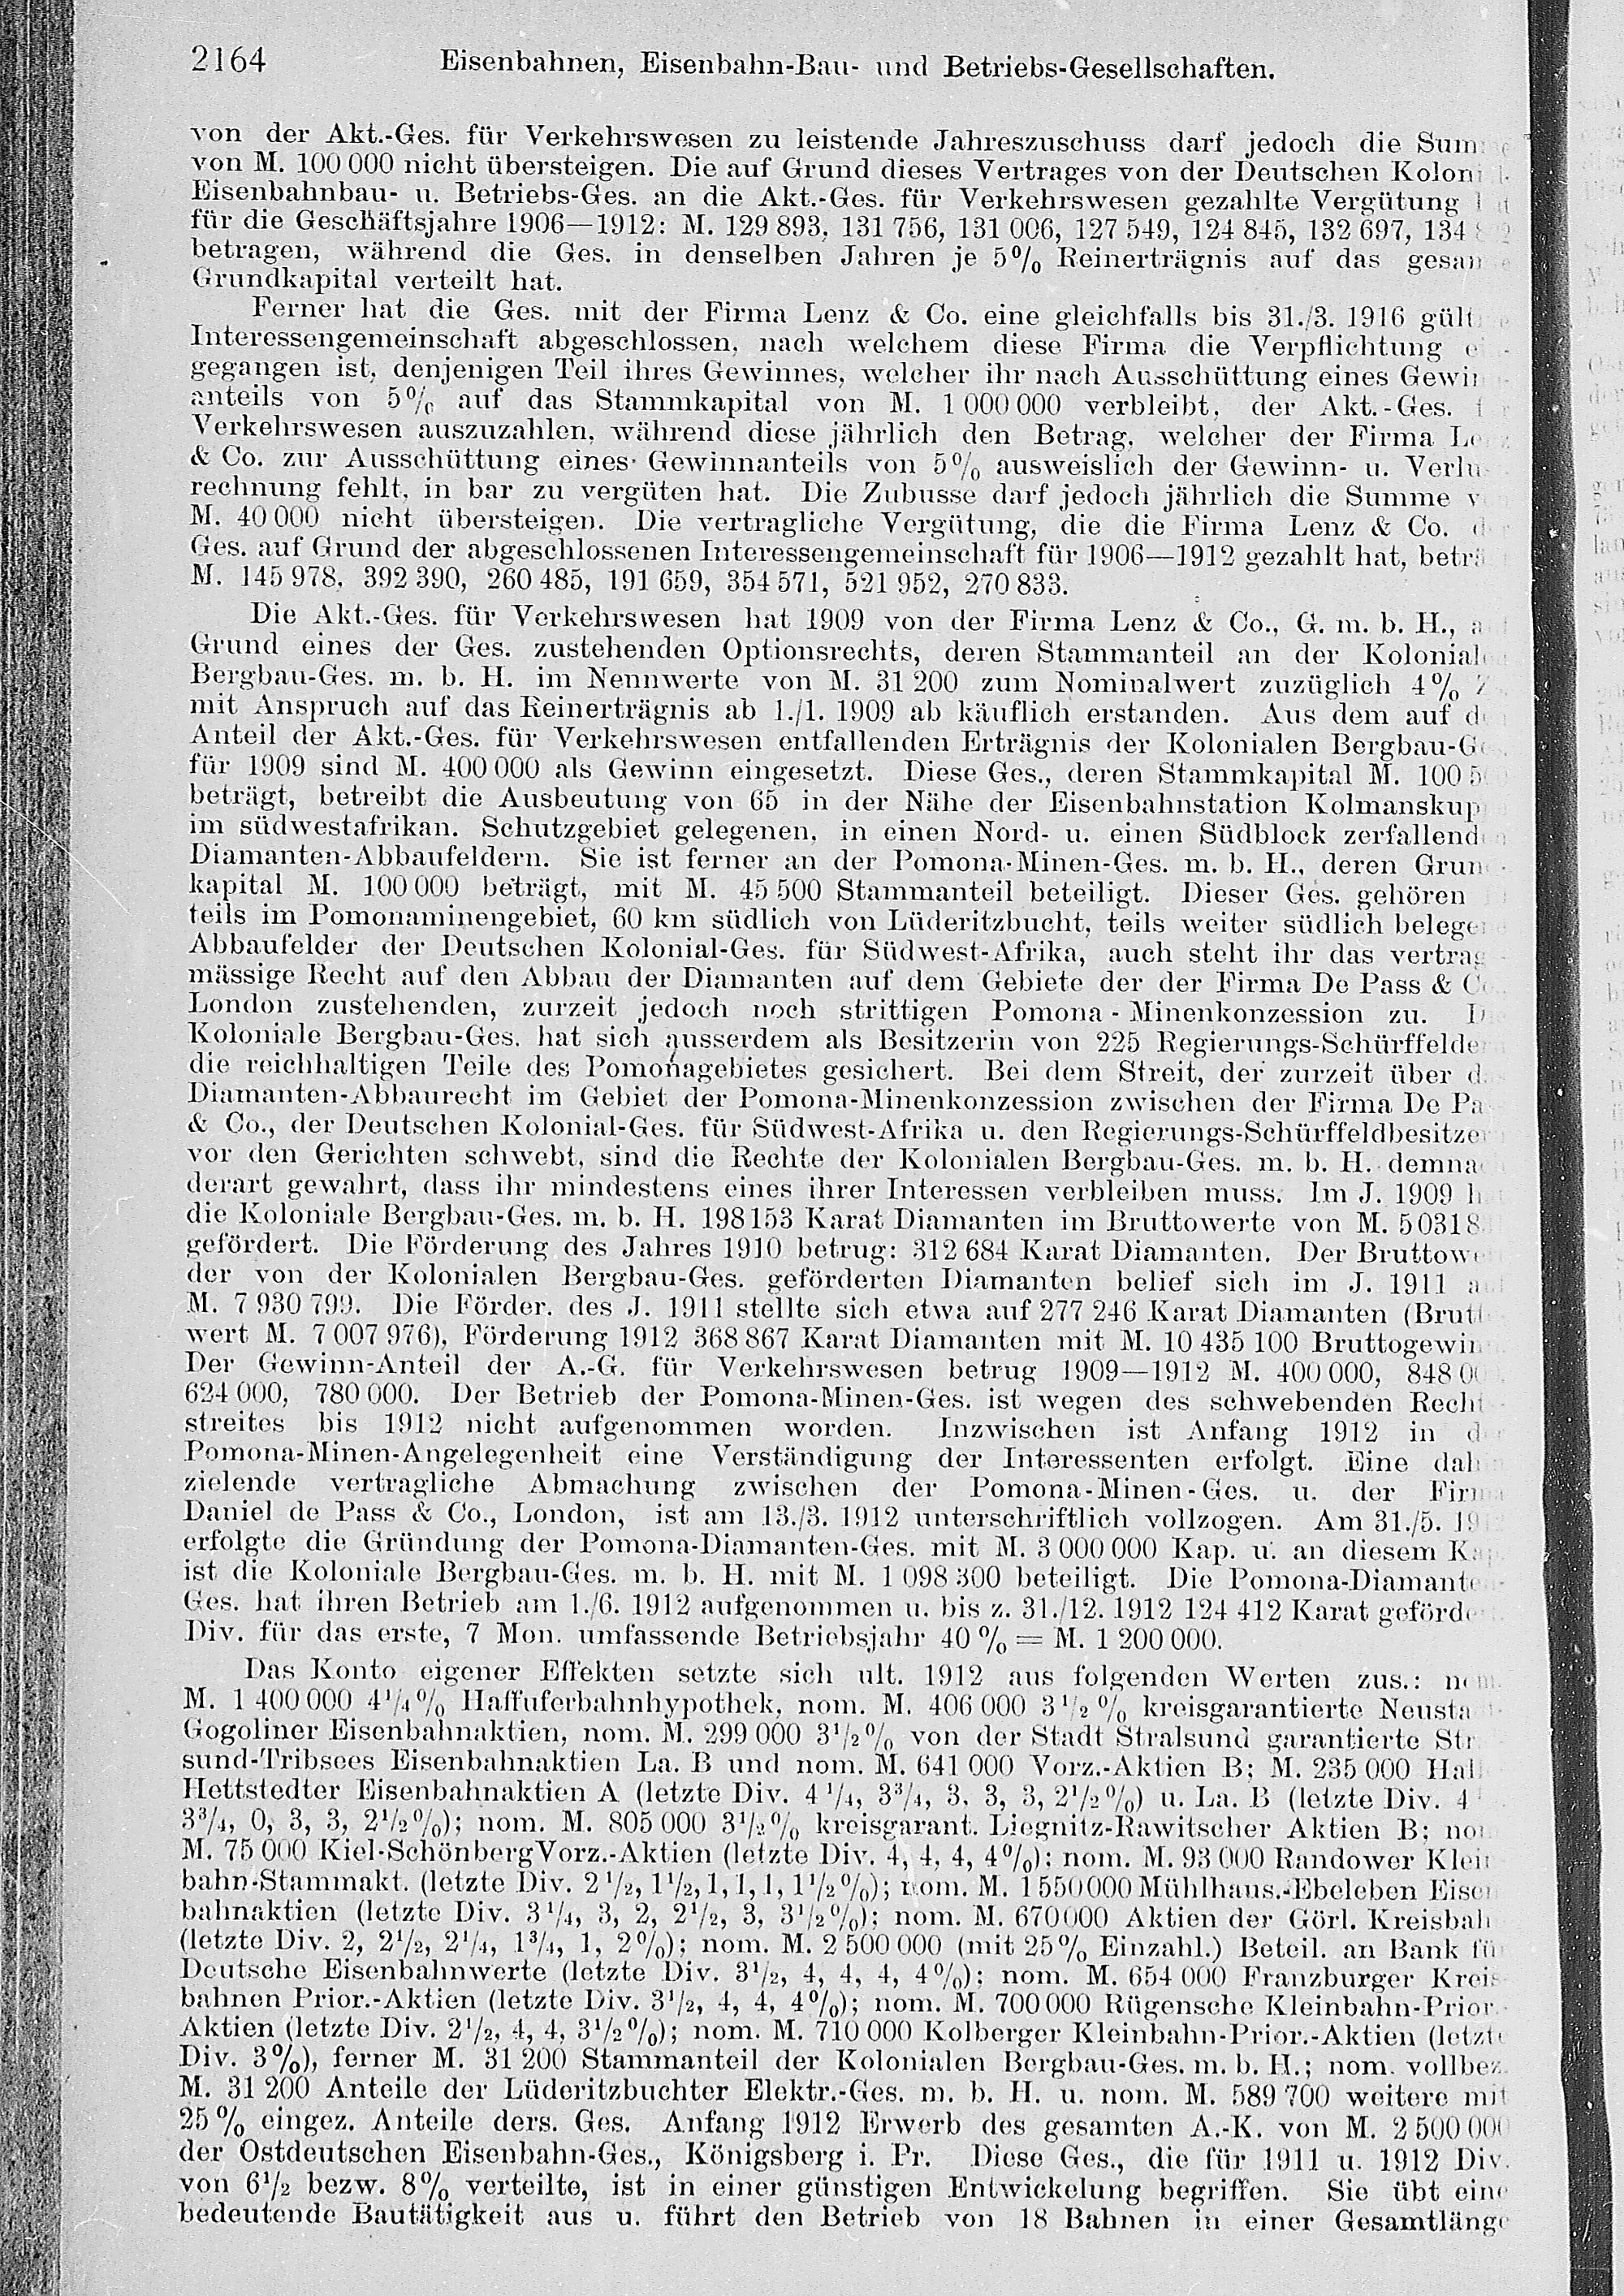 2164 Eisenbahnen, Eisenbahn-Bau- und Betriebs-Gesellschaften.
von der Akt.-Ges. für Verkehrswesen zu leistende Jahreszuschuss darf jedoch die
von M. 100 000 nicht übersteigen. Die auf Grund dieses Vertrages von der Deutschen
Eisenbahnbau- u. Betriebs-Ges. an die Akt.-Ges. für Verkehrswesen gezahlte Vergütung
für die Geschäftsjahre 1906—1912: M. 129 893, 131 756, 131 006, 127 549, 124 845, 132 697, 134
betragen, während die Ges. in denselben Jahren je 5% Reinerträgnis auf das
Grundkapital verteilt hat.
Ferner hat die Ges. mit der Firma Lenz & Co. eine gleichfalls bis 31./3. 1916
Interessengemeinschaft abgeschlossen, nach welchem diese Firma die Verpflichtung
gegangen ist, denjenigen Teil ihres Gewinnes, welcher ihr nach Ausschüttung eines
anteils von 5% auf das Stammkapital von M. 1 000 000 verbleibt, der Akt.-Ges.
Verkehrswesen auszuzahlen, während diese jährlich den Betrag, welcher der Firma
& Co. zur Ausschüttung eines Gewinnanteils von 5% ausweislich der Gewinn- u.
rechnung fehlt, in bar zu vergüten hat. Die Zubusse darf jedoch jährlich die Summe
M. 40 000 nicht übersteigen. Die vertragliche Vergütung, die die Firma Lenz & Co.
Ges. auf Grund der abgeschlossenen Interessengemeinschaft für 1906—1912 gezahlt hat,
M. 145 978, 392 390, 260 485, 191 659, 354 571, 521 952, 270 833.
Die Akt.-Ges. für Verkehrswesen hat 1909 von der Firma Lenz & Co., G. m. b. H.,
Grund eines der Ges. zustehenden Optionsrechts, deren Stammanteil an der
Bergbau-Ges. m. b. H. im Nennwerte von M. 31 200 zum Nominalwert zuzüglich 4%
mit Anspruch auf das Reinerträgnis ab 1./1. 1909 ab käuflich erstanden. Aus dem auf
Anteil der Akt.-Ges. für Verkehrswesen entfallenden Erträgnis der Kolonialen
für 1909 sind M. 400 000 als Gewinn eingesetzt. Diese Ges., deren Stammkapital M.
beträgt, betreibt die Ausbeutung von 65 in der Nähe der Eisenbahnstation
im südwestafrikan. Schutzgebiet gelegenen, in einen Nord- u. einen Südblock
Diamanten-Abbaufeldern. Sie ist ferner an der Pomona-Minen-Ges. m. b. H., deren
kapital M. 100 000 beträgt, mit M. 45 500 Stammanteil beteiligt. Dieser Ges. gehören
teils im Pomonaminengebiet, 60 km südlich von Lüderitzbucht, teils weiter südlich
Abbaufelder der Deutschen Kolonial-Ges. für Südwest-Afrika, auch steht ihr das
mässige Recht auf den Abbau der Diamanten auf dem Gebiete der der Firma De Pass &
London zustehenden, zurzeit jedoch noch strittigen Pomona-Minenkonzession zu.
Koloniale Bergbau-Ges. hat sich ausserdem als Besitzerin von 225
die reichhaltigen Teile des Pomonagebietes gesichert. Bei dem Streit, der zurzeit über
Diamanten-Abbaurecht im Gebiet der Pomona-Minenkonzession zwischen der Firma De
& Co., der Deutschen Kolonial-Ges. für Südwest-Afrika u. den
vor den Gerichten schwebt, sind die Rechte der Kolonialen Bergbau-Ges. m. b. H.
derart gewahrt, dass ihr mindestens eines ihrer Interessen verbleiben muss. Im J. 1909
die Koloniale Bergbau-Ges. m. b. H. 198153 Karat Diamanten im Bruttowerte von M.
gefördert. Die Förderung des Jahres 1910 betrug: 312 684 Karat Diamanten. Der
der von der Kolonialen Bergbau-Ges. geförderten Diamanten belief sich im J. 1911
M. 7 930 799. Die Förder. des J. 1911 stellte sich etwa auf 277 246 Karat Diamanten
wert M. 7 007 976), Förderung 1912 368 867 Karat Diamanten mit M. 10 435 100
Der Gewinn-Anteil der A.-G. für Verkehrswesen betrug 1909—1912 M. 400 000,
624 000, 780 000. Der Betrieb der Pomona-Minen-Ges. ist wegen des schwebenden
streites bis 1912 nicht aufgenommen worden. Inzwischen ist Anfang 1912 in
Pomona-Minen-Angelegenheit eine Verständigung der Interessenten erfolgt. Eine
zielende vertragliche Abmachung zwischen der Pomona-Minen-Ges. u. der
Daniel de Pass & Co., London, ist am 13./3. 1912 unterschriftlich vollzogen. Am 31./5.
erfolgte die Gründung der Pomona-Diamanten-Ges. mit M. 3 000 000 Kap. u. an diesem
ist die Koloniale Bergbau-Ges. m. b. H. mit M. 1 098 300 beteiligt. Die
Ges. hat ihren Betrieb am 1./6. 1912 aufgenommen u. bis z. 31./12. 1912 124 412 Karat
Div. für das erste, 7 Mon. umfassende Betriebsjahr 40 % = M. 1 200 000.
Das Konto eigener Effekten setzte sich ult. 1912 aus folgenden Werten zus.:
M. 1 400 000 4¼% Haffuferbahnhypothek, nom. M. 406 000 3½% kreisgarantierte
Gogoliner Eisenbahnaktien, nom. M. 299 000 3½% von der Stadt Stralsund garantierte
sund-Tribsees Eisenbahnaktien La. B und nom. M. 641 000 Vorz.-Aktien B; M. 235 000
Hettstedter Eisenbahnaktien A (letzte Div. 4¼, 3¾, 3, 3, 3, 2½%) u. La. B (letzte Div. 4
3¾, 0, 3, 3, 2½%); nom. M. 805 000 3½% kreisgarant. Liegnitz-Rawitscher Aktien B;
M. 75 000 Kiel-Schönberg Vorz.-Aktien (letzte Div. 4, 4, 4, 4%); nom. M. 93 000 Randower
bahn-Stammakt. (letzte Div. 2½, 1½, 1, 1, 1, 1½%); nom. M. 1 550 000 Mühlhaus.-Ebeleben
bahnaktien (letzte Div. 3¼, 3, 2, 2½, 3, 3½%); nom. M. 670 000 Aktien der Görl.
(letzte Div. 2, 2½, 2¼, 1¾, 1, 2%); nom. M. 2 500 000 (mit 25% Einzahl.) Beteil. an Bank
Deutsche Eisenbahnwerte (letzte Div. 3½, 4, 4, 4, 4%); nom. M. 654 000 Franzburger
bahnen Prior.-Aktien (letzte Div. 3½, 4, 4, 4%); nom. M. 700 000 Rügensche Kleinbahn-Prior.-
Aktien (letzte Div. 2½, 4, 4, 3½%); nom. M. 710 000 Kolberger Kleinbahn-Prior.-Aktien
Div. 3%), ferner M. 31 200 Stammanteil der Kolonialen Bergbau-Ges. m. b. H.; nom. vollbez.
M. 31 200 Anteile der Lüderitzbuchter Elektr.-Ges. m. b. H. u. nom. M. 589 700 weitere mit
25% eingez. Anteile ders. Ges. Anfang 1912 Erwerb des gesamten A.-K. von M. 2 500 000
der Ostdeutschen Eisenbahn-Ges., Königsberg i. Pr. Diese Ges., die für 1911 u. 1912 Div.
von 6½ bezw. 8% verteilte, ist in einer günstigen Entwickelung begriffen. Sie übt eine
bedeutende Bautätigkeit aus u. führt den Betrieb von 18 Bahnen in einer Gesamtlänge